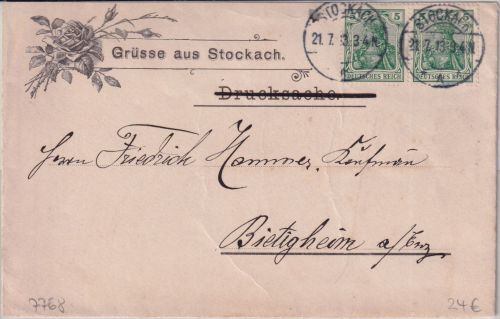 STOCKACH
21.7.13.3-4N.
STOCKACH
21.7.13.3-4N.
5
DEUTSCHES REICH
DEUTSCHES REICH
Grüsse aus Stockach.
Drucksache.
Herrn Friedrich Hammer, Kaufmann
Bietigheim a/Enz
7768
24€